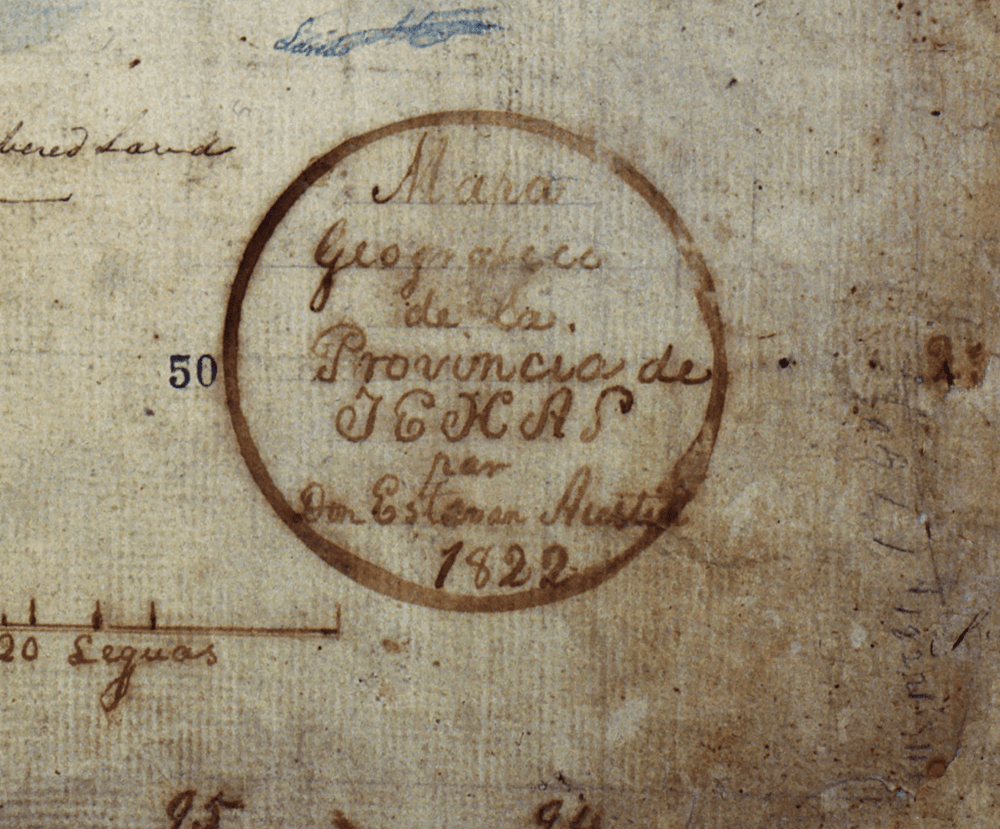 Land
Mapa
Geografico
de La
Provincia de
TEXAS
par
Don Estavan Austin
1822
50
20 Leguas
95
94